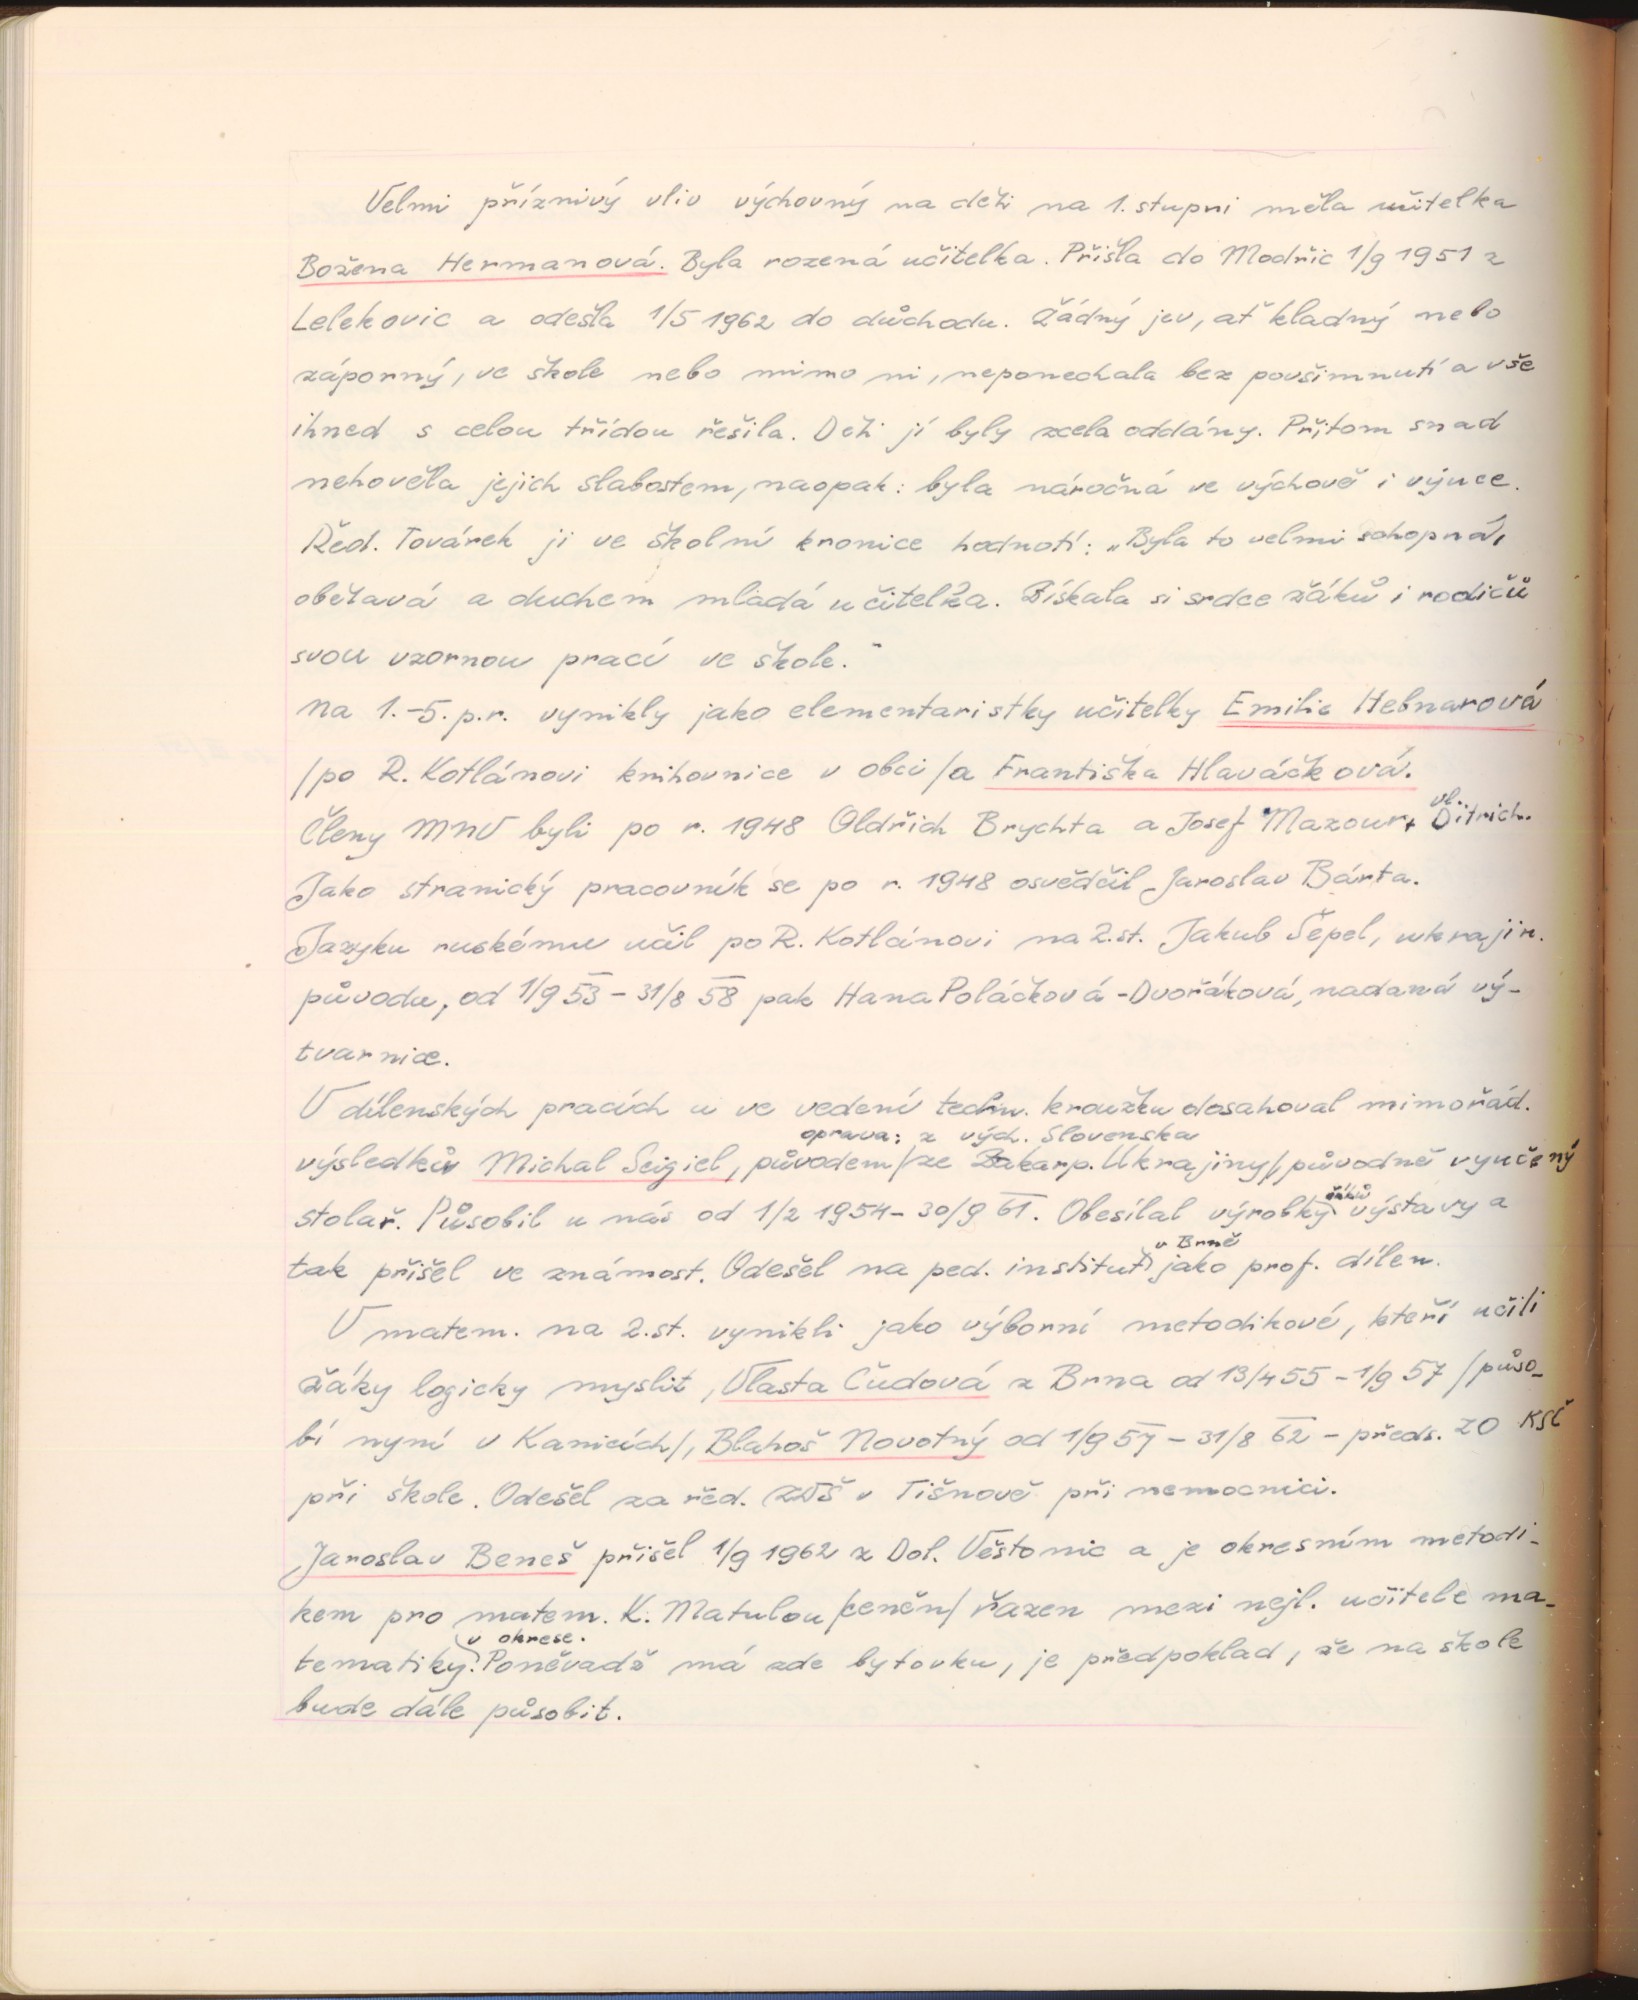 Velmi příznivý vliv výchovný na děti na 1. stupni měla učitelka
Božena Hermanová. Byla rozená učitelka. Přišla do Modřic 1/9 1951 z
Lelekovic a odešla 1/5 1962 do důchodu. Žádný jev, ať kladný nebo
záporný, ve škole nebo mimo ni, neponechala bez povšimnutí a vše
ihned s celou třídou řešila. Děti jí byly zcela oddány. Přitom snad
nehověla jejich slabostem, naopak: byla náročná ve výchově i výuce.
Řed. Továrek ji ve školní kronice hodnotí: „Byla to velmi schopná,
obětavá a duchem mladá učitelka. Získala si srdce žáků i rodičů
svou vzornou prací ve škole."
Na 1.-5. p.r. vynikly jako elementaristky učitelky Emilie Hebnarová
/po R. Kotlánovi knihovnice v obci/ a Františka Hlaváčková.
vl.
Členy MNV byli po r. 1948 Oldřich Brychta a Josef Mazour, Ditrich.
Jako stranický pracovník se po r. 1948 osvědčil Jaroslav Bárta.
Jazyku ruskému učil po R. Kotlánovi na 2.st. Jakub Šepel, ukrajin.
původu, od 1/9 53 - 31/8 58 pak Hana Poláčková-Dvořáková, nadaná vý-
tvarnice.
V dílenských pracích u ve vedení techn. kroužku dosahoval mimořád.
oprava: z vých. Slovenska
výsledků Michal Seigiel, původem /ze Zakarp. Ukrajiny/, původně vyučený
žáků
stolař. Působil u nás od 1/2 1954 - 30/9 61. Obesílal výrobky výstavy a
v Brně
tak přišel ve známost. Odešel na ped. institut jako prof. dílen.
V matem. na 2.st. vynikli jako výborní metodikové, kteří učili
žáky logicky myslit, Vlasta Čudová z Brna od 13/4 55 - 1/9 57 /půso-
bí nyní v Kanicích/, Blahoš Novotný od 1/9 57 - 31/8 62 - předs. ZO KSČ
při škole. Odešel za řed. ZDŠ v Tišnově při nemocnici.
Jaroslav Beneš přišel 1/9 1962 z Dol. Věstonic a je okresním metodi-
kem pro matem. K. Matulou /ceněn/ řazen mezi nejl. učitele ma-
v okrese.
tematiky. Poněvadž má zde bytovku, je předpoklad, že na škole
bude dále působit.